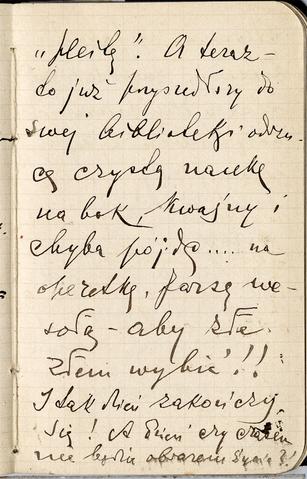 "fleilą". A teraz –
to już przyszedłszy do
swej biblioteki odrzu-
cę czystą naukę
na bok, kwaśny i
chyba pójdę .... na
operetkę, farsę we-
sołą – aby złe
złem wybić!!
I tak dzień zakończy
się! A dzień czy czasem
nie będzie obrazem życia?!